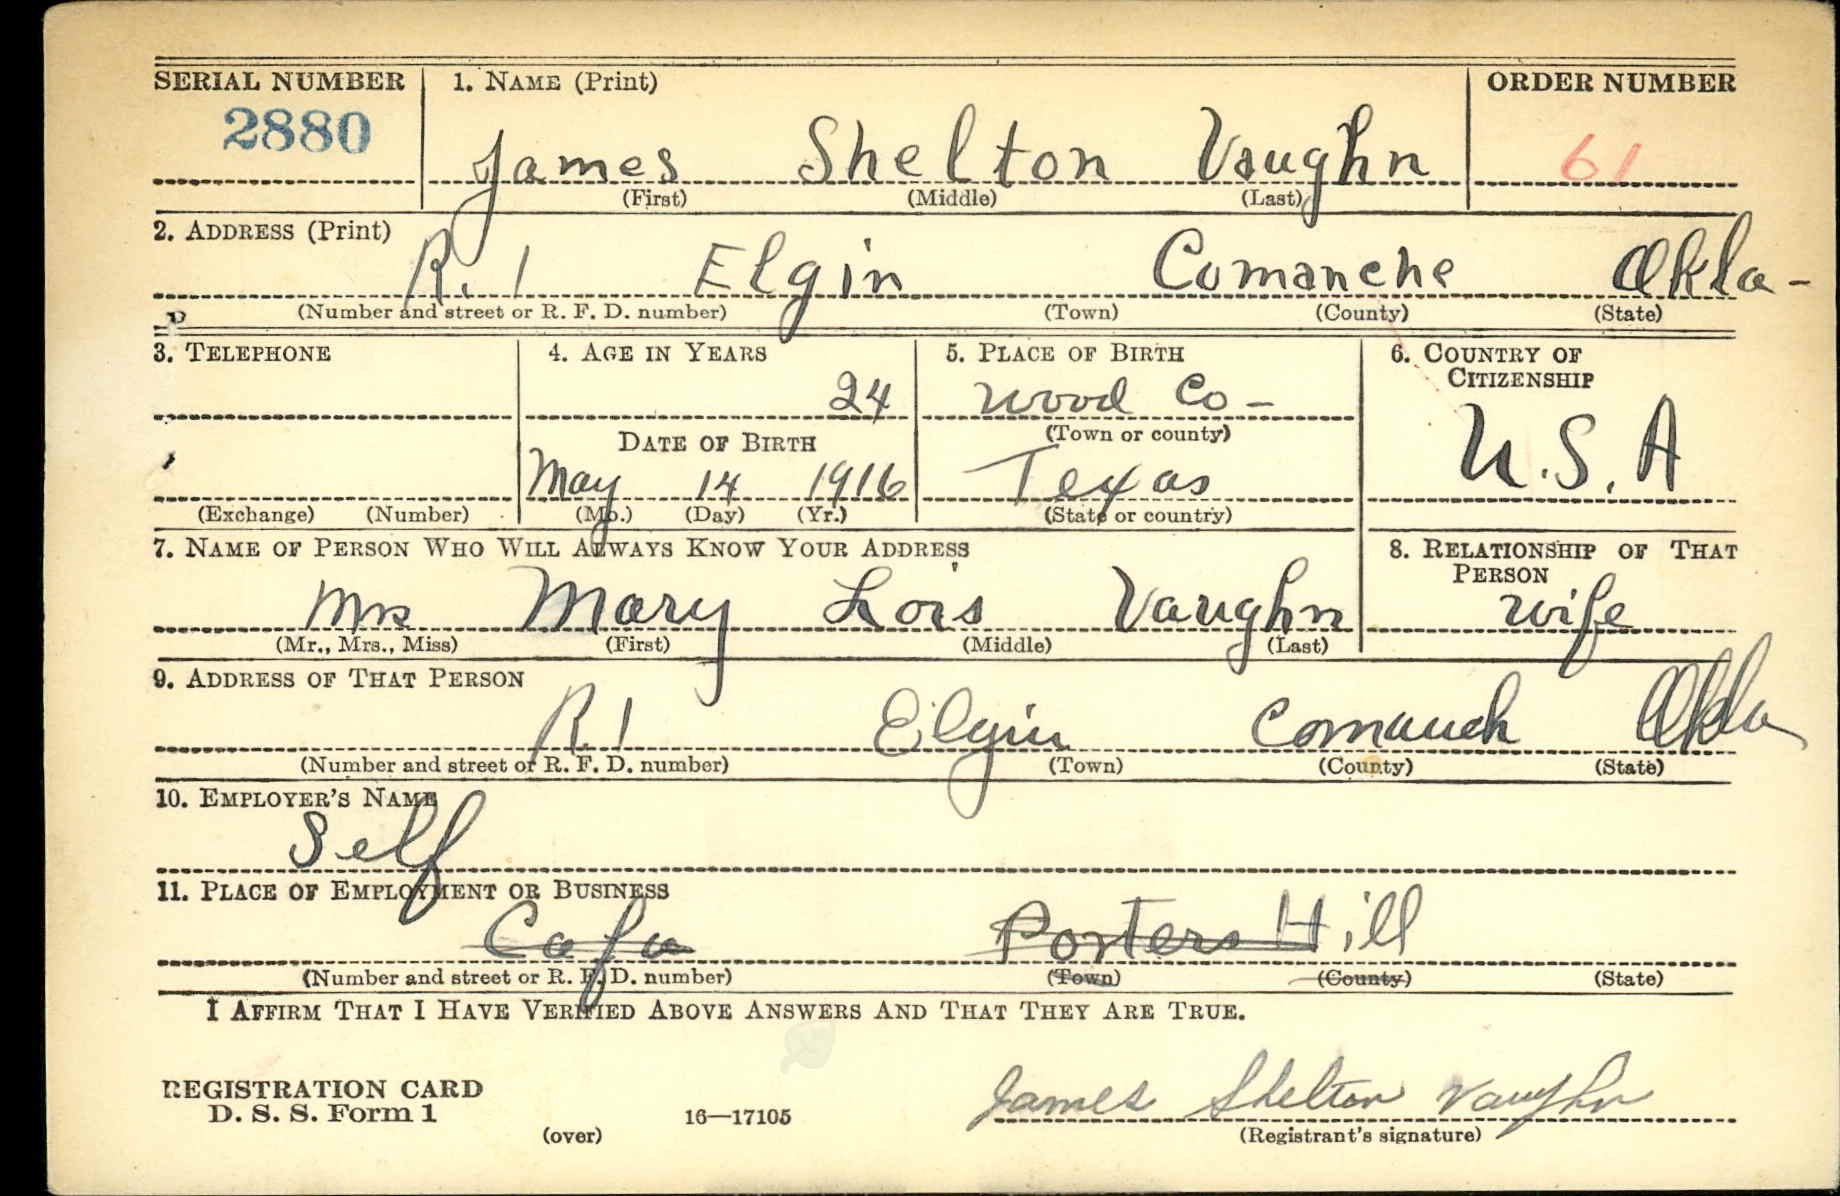 SERIAL NUMBER 1. NAME (Print) ORDER NUMBER
2880 James Shelton Vaughn 61
(First) (Middle) (Last)
2. ADDRESS (Print)
R. 1 Elgin Comanche Okla-
(Number and street or R. F. D. number) (Town) (County) (State)
3. TELEPHONE 4. AGE IN YEARS 5. PLACE OF BIRTH 6. COUNTRY OF
CITIZENSHIP
24 Wood Co-
DATE OF BIRTH (Town or county)
May 14 1916 Texas U.S.A
(Exchange) (Number) (Mo.) (Day) (Yr.) (State or country)
7. NAME OF PERSON WHO WILL ALWAYS KNOW YOUR ADDRESS 8. RELATIONSHIP OF THAT
PERSON
Mrs Mary Lois Vaughn wife
(Mr., Mrs., Miss) (First) (Middle) (Last)
9. ADDRESS OF THAT PERSON
R. 1 Elgin Comanch Okla
(Number and street or R. F. D. number) (Town) (County) (State)
10. EMPLOYER'S NAME
Self
11. PLACE OF EMPLOYMENT OR BUSINESS
Porters Hill
(Number and street or R. F. D. number) (Town) (County) (State)
I AFFIRM THAT I HAVE VERIFIED ABOVE ANSWERS AND THAT THEY ARE TRUE.
REGISTRATION CARD
D. S. S. Form 1 16—17105 James Shelton Vaughn
(over) (Registrant's signature)